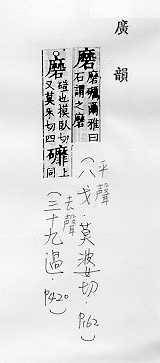 廣韻
磨 磨礪爾雅曰石謂之磨
磨 磑也摸臥切又莫禾切四 䃺 上同
平聲
(八戈.莫婆切.P162)
去聲
(三十九過.P420)